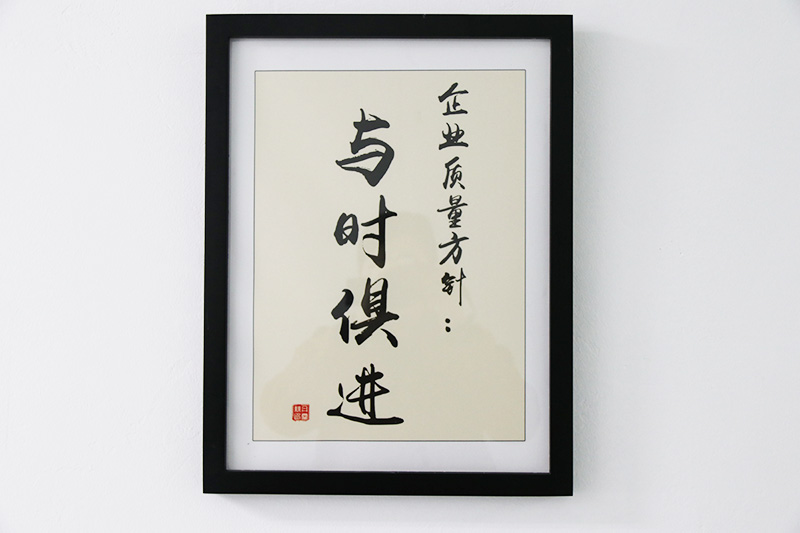 企业质量方针：
与时俱进